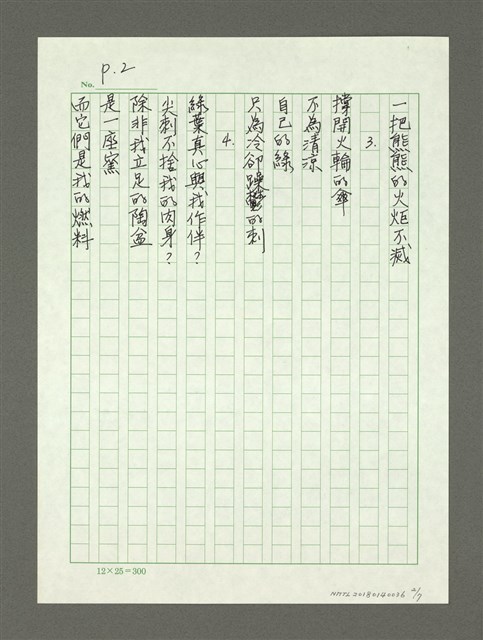 P.2
No.
一把熊熊的火炬不滅
3.
撐開火輪的傘
不為清涼
自己的綠
只為冷卻躁鬱的刺
4.
綠葉真心與我作伴?
尖刺不捨我的肉身?
除非我立足的陶盆
是一座窯
而它們是我的燃料
12×25=300
NMTL20180140036 2/7